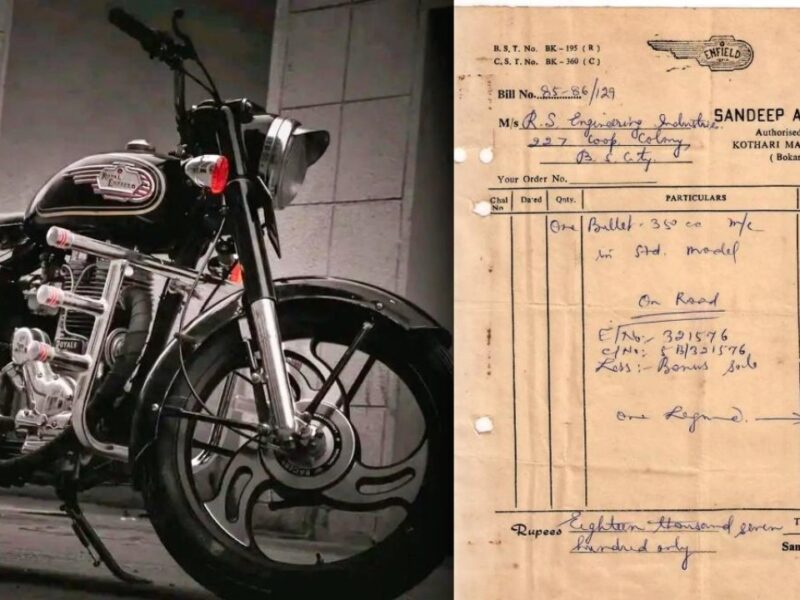 ROYAL ENFIELD
ROYALE
B.S.T. No. BK-195 (R)
C.S.T. No. BK-360 (C)
ENFIELD
Bill No. 85-86/129
SANDEEP A
Authorised
KOTHARI MA
(Bokar
M/s R.S. Engineering Industries.
227 Coop. Colony
B.S. City.
Your Order No.
Chal No
Dated
Qnty.
PARTICULARS
One Bullet-350 cc m/c
in Std. model
On Road
E/No:- 321576
C/No: 5B/321576
Less:- Bonus
One
Rupees Eighteen thousand seven
hundred only
T
San